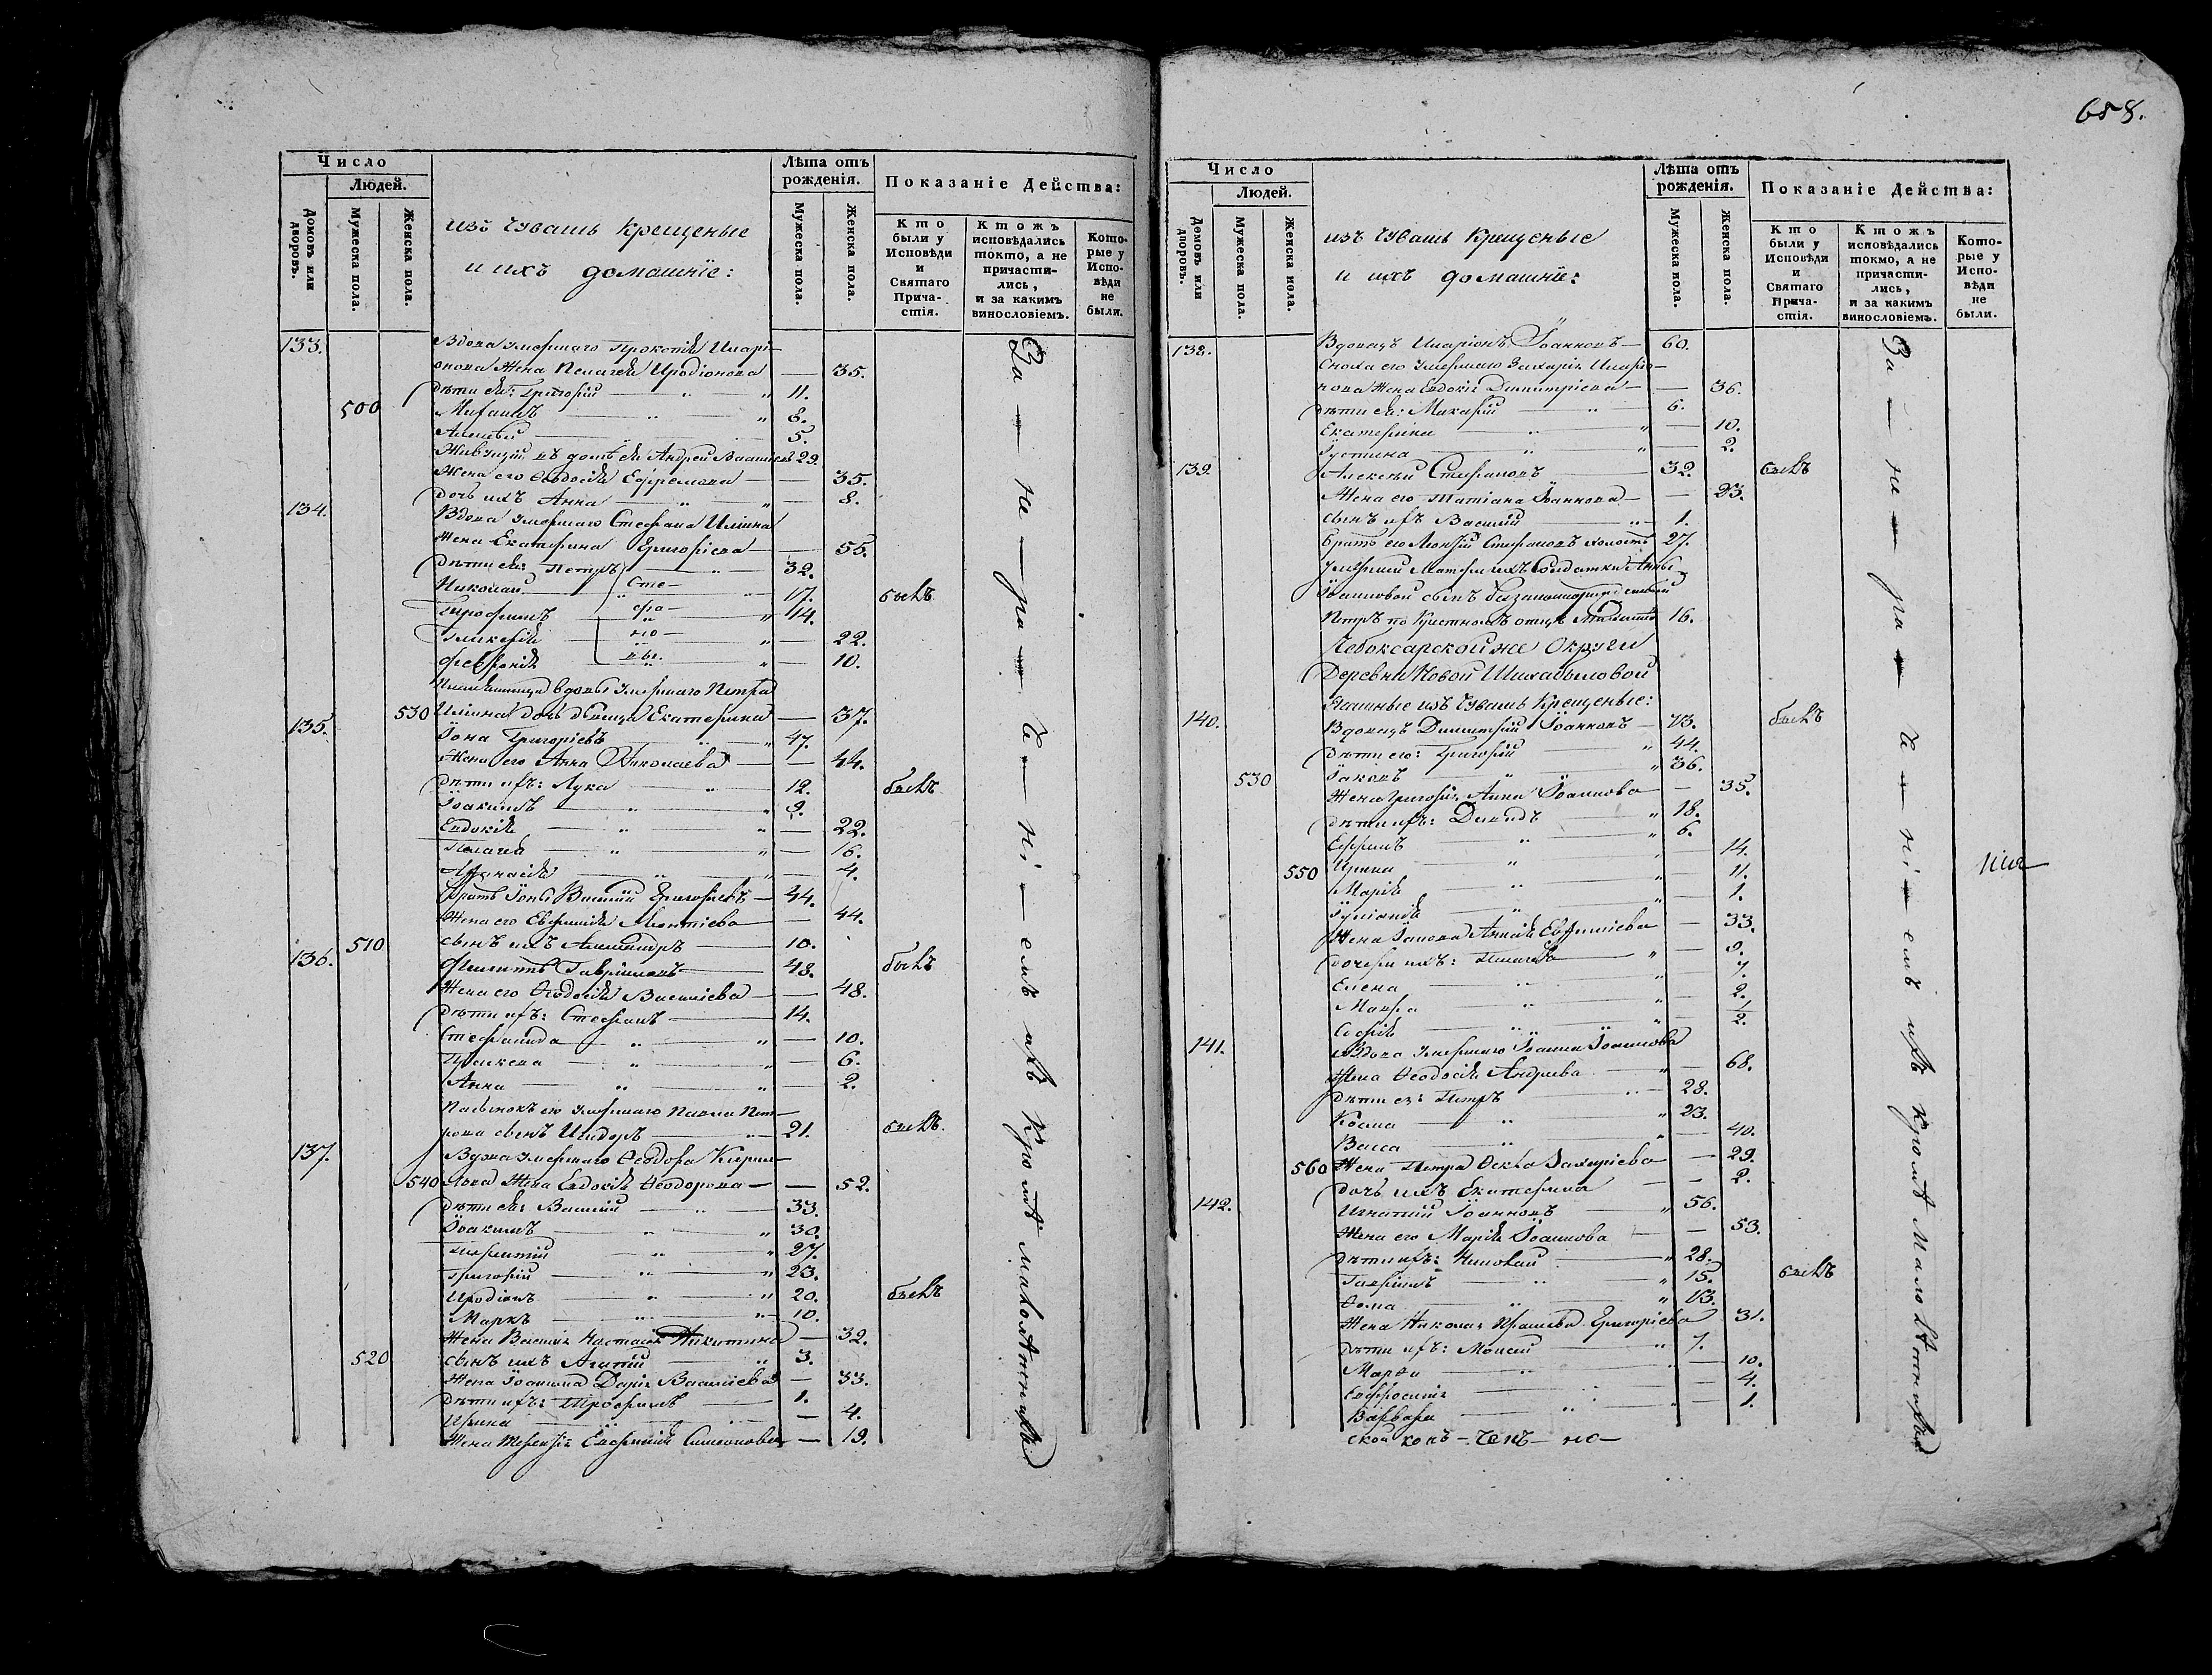 658.
Число
Людей.
Домовъ или дворовъ.
Мужеска пола.
Женска пола.
изъ Чувашъ Крещеные
и ихъ домашніе:
Лѣта отъ рожденія.
Мужеска пола.
Женска пола.
Показаніе Действа:
Кто были у Исповѣди и Святаго Прича-стія.
Ктожъ исповѣдались токмо, а не причасти-лись, и за какимъ винословіемъ.
Кото-рые у Испо-вѣди не были.
133. Вдова умершаго Прокопія Иларі-
онова Жена Пелагея Иродіонова — 35.
500 Дѣти ея: Григорій 11.
Михаилъ 8.
Алексѣй 5.
Живущій въ домѣ ея Андрей Васильевъ 29.
Жена его Ѳеодосія Ефремова — 35.
Дочь ихъ Анна — 8.
134. Вдова умершаго Стефана Иліина
Жена Екатерина Григоріева — 55.
Дѣти ея: Петръ 32.
Николай 17. былъ
Трофимъ 14.
Гликерія — 22.
Февронія — 10.
Сте-
фа-
но-
вы.
Племянница вдовы умершаго Петра
530 Иліина дочь дѣвица Екатерина — 37.
135. Іона Григорьевъ 47.
Жена его Анна Николаева — 44.
Дѣти ихъ: Лука 12. былъ
Іоакимъ 9.
Евдокія — 22.
Пелагея — 16.
Афанасія — 4.
Братъ Іоны Василій Григорьевъ 44.
Жена его Евфимія Леонтіева — 44.
510 сынъ ихъ Александръ 10.
136. Филиппъ Гавриловъ 48. былъ
Жена его Ѳеодосія Василіева — 48.
Дѣти ихъ: Стефанъ 14.
Стефанида — 10.
Параскева — 6.
Анна — 2.
Пасынокъ его умершаго Павла Пет-
рова сынъ Исидоръ 21. былъ.
137. Вдова умершаго Ѳеодора Кирил-
540 лова Жена Евдокія Ѳеодорова — 52.
Дѣти ея: Василій 33.
Іоакимъ 30.
Терентій 27.
Григорій 23.
Иродіонъ 20. былъ
Маркъ 10.
Жена Василія Настасія Никитина — 32.
520 сынъ ихъ Агапій 3.
Жена Іоакима Дарія Василіева — 33.
Дѣти ихъ: Трофимъ 1.
Ирина — 4.
Жена Терентія Евфимія Симеонова — 19.
За — не — ра — че — ні — емъ ихъ Кромѣ малолѣтнихъ
Число
Людей.
Домовъ или дворовъ.
Мужеска пола.
Женска пола.
изъ Чувашъ Крещеные
и ихъ домашніе:
Лѣта отъ рожденія.
Мужеска пола.
Женска пола.
Показаніе Действа:
Кто были у Исповѣди и Святаго Прича-стія.
Ктожъ исповѣдались токмо, а не причасти-лись, и за какимъ винословіемъ.
Кото-рые у Испо-вѣди не были.
138. Вдовецъ Иларіонъ Іоанновъ 60.
Сноха его умершаго Захарія Иларіо-
нова Жена Евдокія Димитріева — 36.
Дѣти ея: Макарій 6.
Екатерина — 10.
Іустина — 2.
139. Алексѣй Стефановъ 32. былъ
Жена его Татіана Іоаннова — 23.
сынъ ихъ Василій 1.
Братъ его Стефановъ холостъ 27.
умершей Матери ихъ Солдатки Анны
Іоанновой сынъ незаконнорожденный
Петръ по Крестномъ отцѣ 16.
Чебоксарской же Округи
Деревни Новой Шихабыловой
Ясашные изъ Чувашъ Крещеные:
140. Вдовецъ Димитрій Іоанновъ 73. былъ
Дѣти его: Григорій 44.
530 Іаковъ 36.
Жена Григорія Анна Іоаннова — 35.
Дѣти ихъ: Давидъ 18.
Ефремъ 6.
Ирина — 14.
550 Марія — 11.
Іуліанія — 1.
Жена Іакова Анна Евфиміева — 33.
Дочери ихъ: Пелагея — 9.
Елена — 7.
Мавра — 2.
Софія — 1/2.
141. Вдова умершаго Іоанна Іоаннова
Жена Ѳеодосія Андреева — 68.
Дѣти ея: Петръ 28.
Косма 23.
Васса — 40.
560 Жена Петра Ѳекла Захаріева — 29.
дочь ихъ Екатерина — 2.
142. Игнатій Іоанновъ 56.
Жена его Марія Іоаннова — 53.
Дѣти ихъ: Николай 28.
Гавріилъ 15. былъ
Ѳома 13.
Жена Николая Григоріева 31.
Дѣти ихъ: Моисей 7.
Марѳа — 10.
Евфросинія — 4.
Варвара — 1.
За — не — ра — че — ні — емъ ихъ Кромѣ Малолѣтнихъ